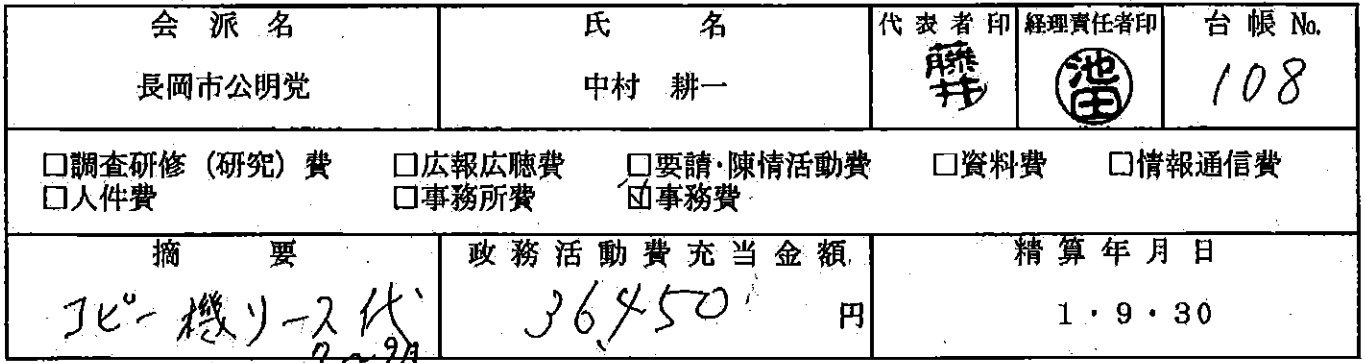 会派名 氏名 代表者印 経理責任者印 台帳No.
長岡市公明党 中村 耕一 藤井 池田 108
□調査研修（研究）費 □広報広聴費 □要請・陳情活動費 □資料費 □情報通信費
□人件費 □事務所費 ☑事務費
摘要 政務活動費充当金額 精算年月日
コピー機リース代 36,450 円 1・9・30
7～9月